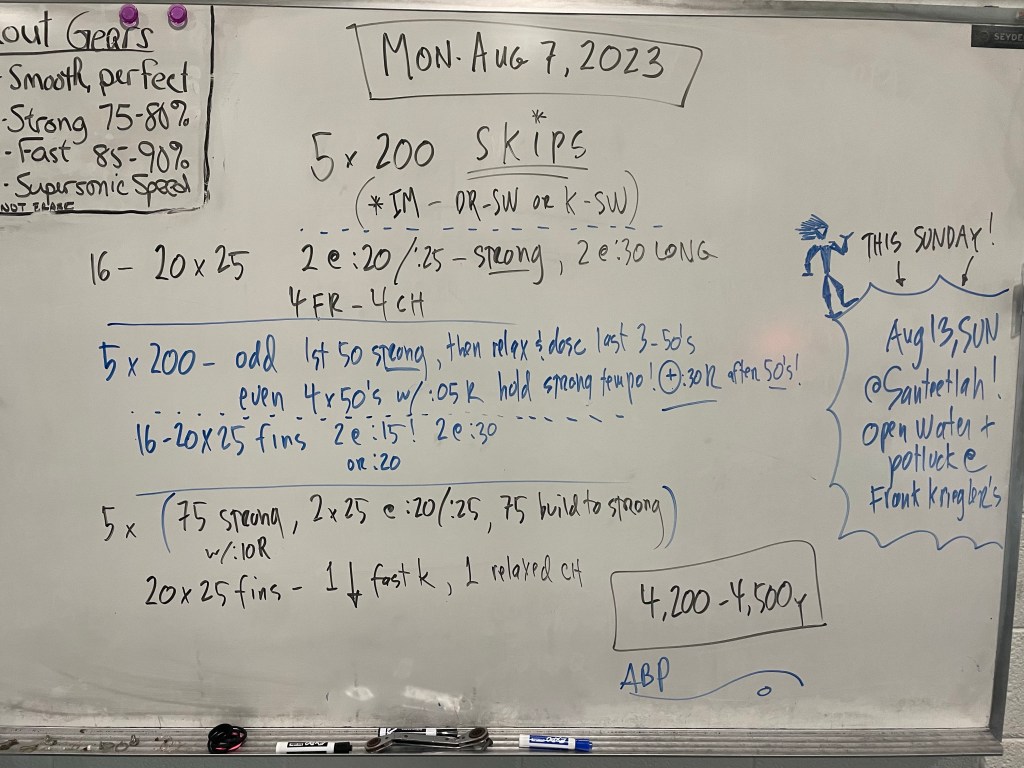 out Gears
- Smooth, perfect
- Strong 75-80%
- Fast 85-90%
- Supersonic Speed
NOT ERASE
MON. AUG 7, 2023
5 x 200 SKiPS*
(*IM - DR-SW OR K-SW)
16 - 20 x 25 2 @ :20/:25 - strong, 2 @ :30 LONG
4 FR - 4 CH
5 x 200 - odd 1st 50 strong, then relax & desc last 3-50's
even 4 x 50's w/:05R hold strong tempo! + :30R after 50's!
16-20x25 fins 2@:15! 2@:30
OR :20
5 x (75 strong, 2x25 @ :20/:25, 75 build to strong)
w/:10R
20x25 fins - 1↓ fast k, 1 relaxed CH
4,200 - 4,500y
ABP
THIS SUNDAY!
Aug 13, SUN
@Santeetlah!
open water +
potluck @
Frank
SEYDE
EXPO
EXPO